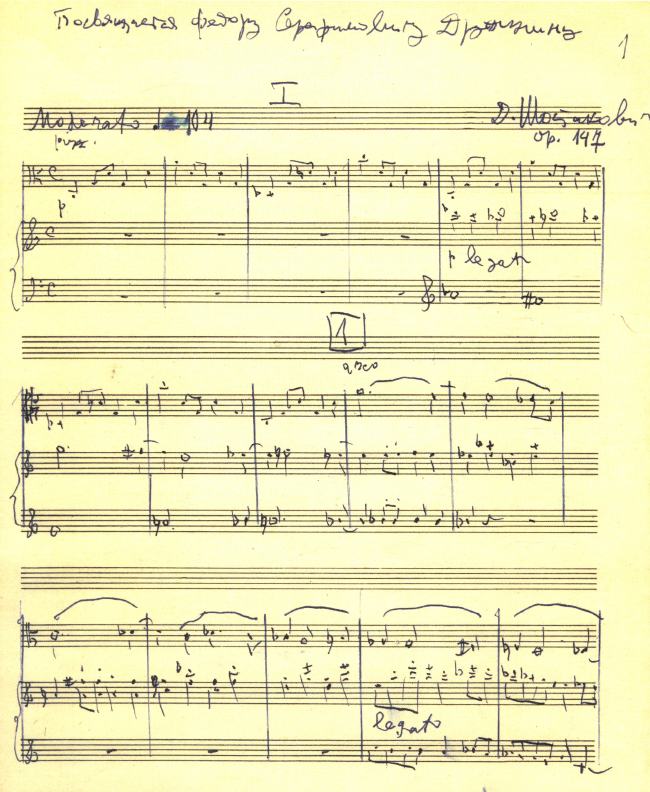 Посвящается Федору Серафимовичу Дружинину
1
I
Moderato ♩=104
Д. Шостакович
op. 147
pizz.
p
p legato
1
arco
legato